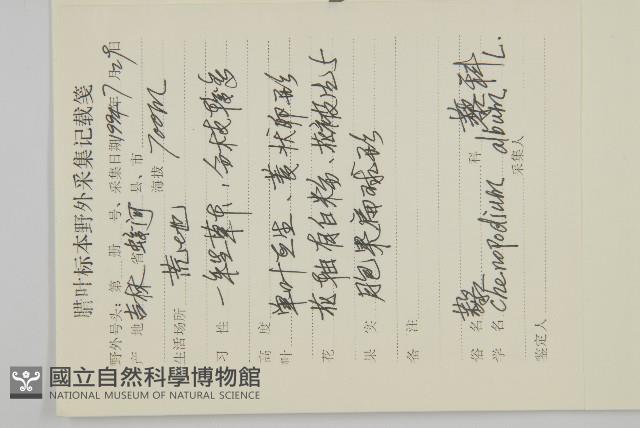 腊叶标本野外采集记载笺
野外号头: 第 册 号、采集日期1994年7月29日
产 地 吉林省蛟河县、市
生活场所 荒地 海拔 700M
习 性 一年生草本，多枝
高 度
叶 单叶互生、菱状卵形
花 花被有白粉、花被
果 实 胞果扁球形
备 注
俗 名 藜 藜科
学 名 Chenopodium album L.
鉴定人 采集人
國立自然科學博物館
NATIONAL MUSEUM OF NATURAL SCIENCE